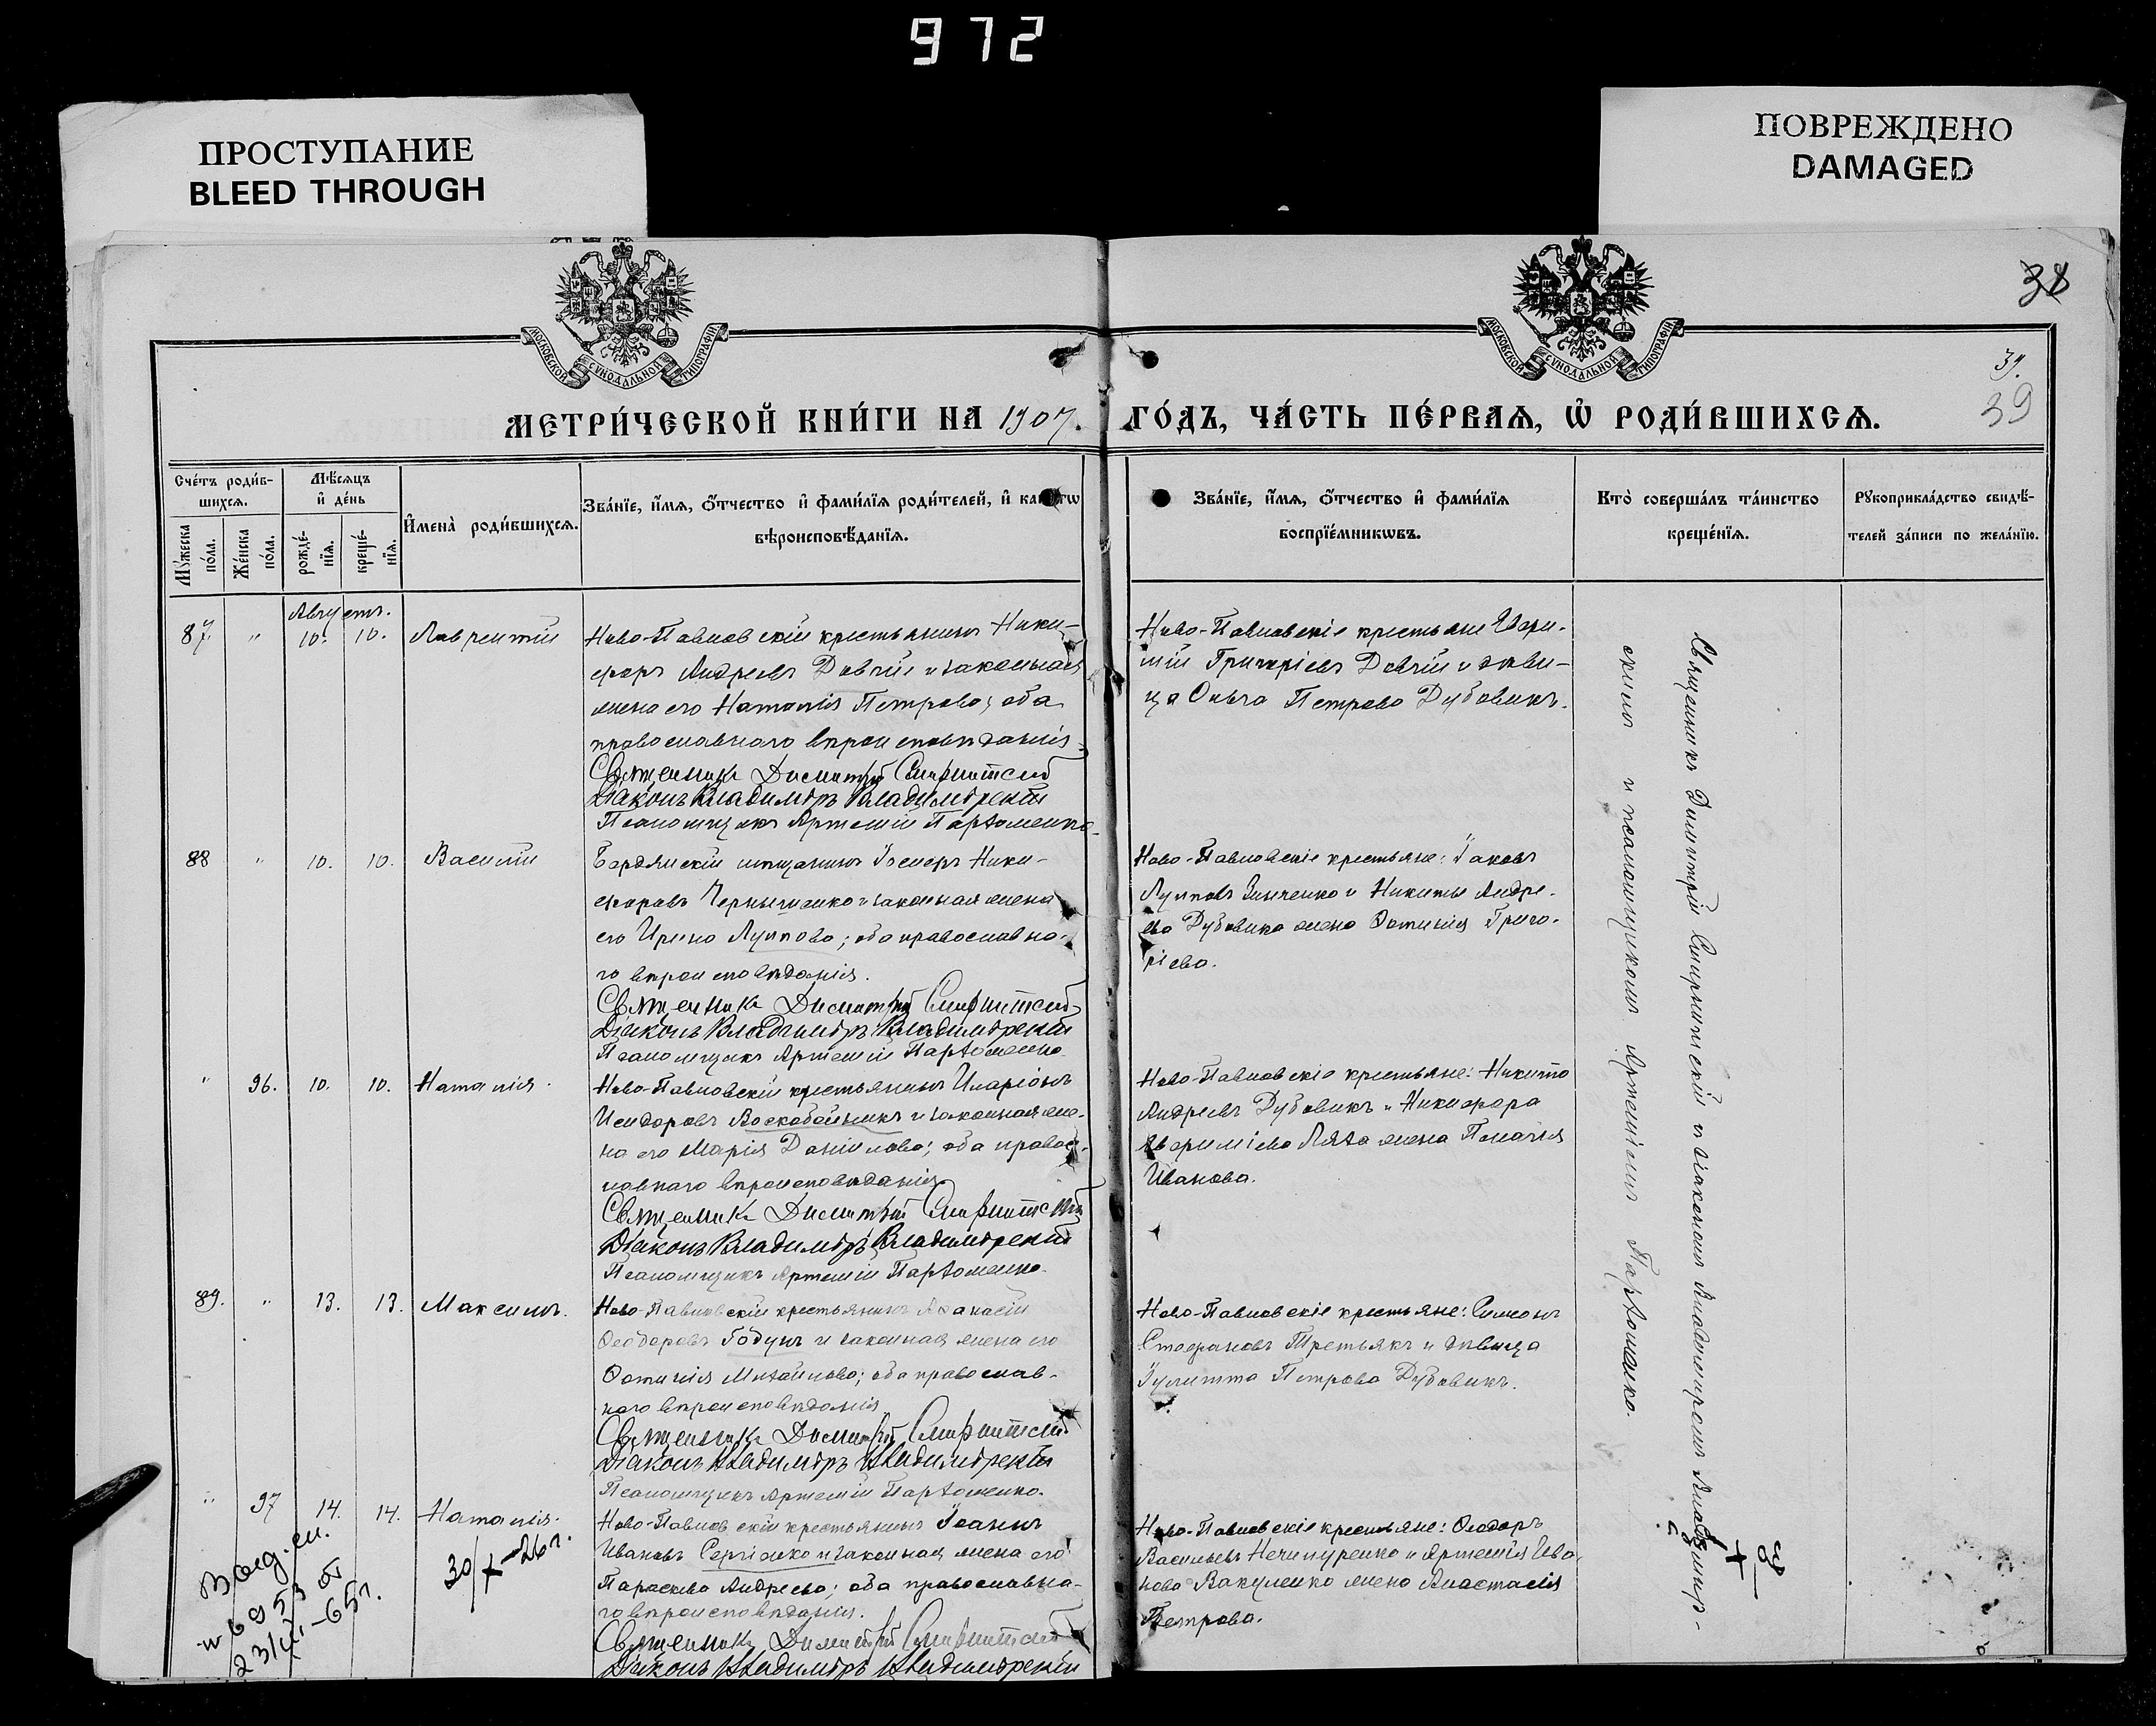 972
ПРОСТУПАНИЕ
BLEED THROUGH
ПОВРЕЖДЕНО
DAMAGED
МОСКОВСКОЙ СѴНОДАЛЬНОЙ ТИПОГРАФІИ
МОСКОВСКОЙ СѴНОДАЛЬНОЙ ТИПОГРАФІИ
38
39
39
МЕТРИ́ЧЕСКОЙ КНИ́ГИ НА 1907. ГО́ДЪ, ЧА́СТЬ ПЕ́РВАѦ, Ѡ҆ РОДИ́ВШИХСѦ.
Сче́тъ роди́в-
шихсѧ.
Му́жеска по́ла.
Же́нска по́ла.
Мѣ́сѧцъ и҆ де́нь
рожде́-нїѧ.
креще́-нїѧ.
И҆мена̀ роди́вшихсѧ.
Зва́нїе, и҆́мѧ, ѻ҆́тчество и҆ фами́лїѧ роди́телей, и҆ како́гѡ
вѣроисповѣ́данїѧ.
Зва́нїе, и҆́мѧ, ѻ҆́тчество и҆ фами́лїѧ
воспрїе́мникѡвъ.
Кто̀ соверша́лъ та́инство
креще́нїѧ.
Рꙋкоприкла́дство свидѣ́-
телей за́писи по жела́нїю.
Августъ.
87. " 10. 10. Лаврентій
Ново-Павловскій крестьянинъ Ники-
форъ Андреевъ Довгій и законная
жена его Наталія Петрова; оба
православнаго вѣроисповѣданія.
Священникъ Димитрій Смирнитскій
Діаконъ Владимиръ Владимирскій
Псаломщикъ Артемій Пархоменко.
Ново-Павловскіе крестьяне Евфи-
мій Григоріевъ Довгій и дѣви-
ца Ольга Петрова Дубовикъ.
88 " 10. 10. Василій
Бердянскій мѣщанинъ Іосифъ Ники-
форовъ Черныченко и законная жена
его Ирина Луппова; оба православна-
го вѣроисповѣданія.
Священникъ Димитрій Смирнитскій
Діаконъ Владимиръ Владимирскій
Псаломщикъ Артемій Пархоменко.
Ново-Павловскіе крестьяне: Іаковъ
Лупповъ Зинченко и Никиты Андре-
ева Дубовика жена Фотинія Григо-
ріева.
" 96. 10. 10. Наталія.
Ново-Павловскій крестьянинъ Иларіонъ
Исидоровъ Воскобойникъ и законная же-
на его Марія Даніилова; оба правос-
лавнаго вѣроисповѣданія
Священникъ Димитрій Смирнитскій
Діаконъ Владимиръ Владимирскій
Псаломщикъ Артемій Пархоменко.
Ново-Павловскіе крестьяне: Никита
Андреевъ Дубовикъ и Никифора
Евфиміева Ляха жена Пелагія
Иванова.
89. " 13. 13. Максимъ.
Ново-Павловскій крестьянинъ Афанасій
Ѳеодоровъ Годунъ и законная жена его
Фотинія Михайлова; оба православ-
наго вѣроисповѣданія
Священникъ Димитрій Смирнитскій
Діаконъ Владимиръ Владимирскій
Псаломщикъ Артемій Пархоменко.
Ново-Павловскіе крестьяне: Симеонъ
Стефановъ Третьякъ и дѣвица
Іулитта Петрова Дубовикъ.
" 97 14. 14. Наталія.
Ново-Павловскій крестьянинъ Іоаннъ
Ивановъ Сергіенко и законная жена его
Параскева Андреева; оба православна-
го вѣроисповѣданія.
Священникъ Димитрій Смирнитскій
Діаконъ Владимиръ Владимирскій
Ново-Павловскіе крестьяне: Ѳеодоръ
Васильевъ Нечипуренко и Артемія Ива-
нова Вакуленко жена Анастасія
Петрова.
30/X-26г.
23/XI-65г.
Священникъ Димитрій Смирнитскій и діаконъ Владимиръ Владимир-
скій и псаломщикомъ Артеміемъ Пархоменко.